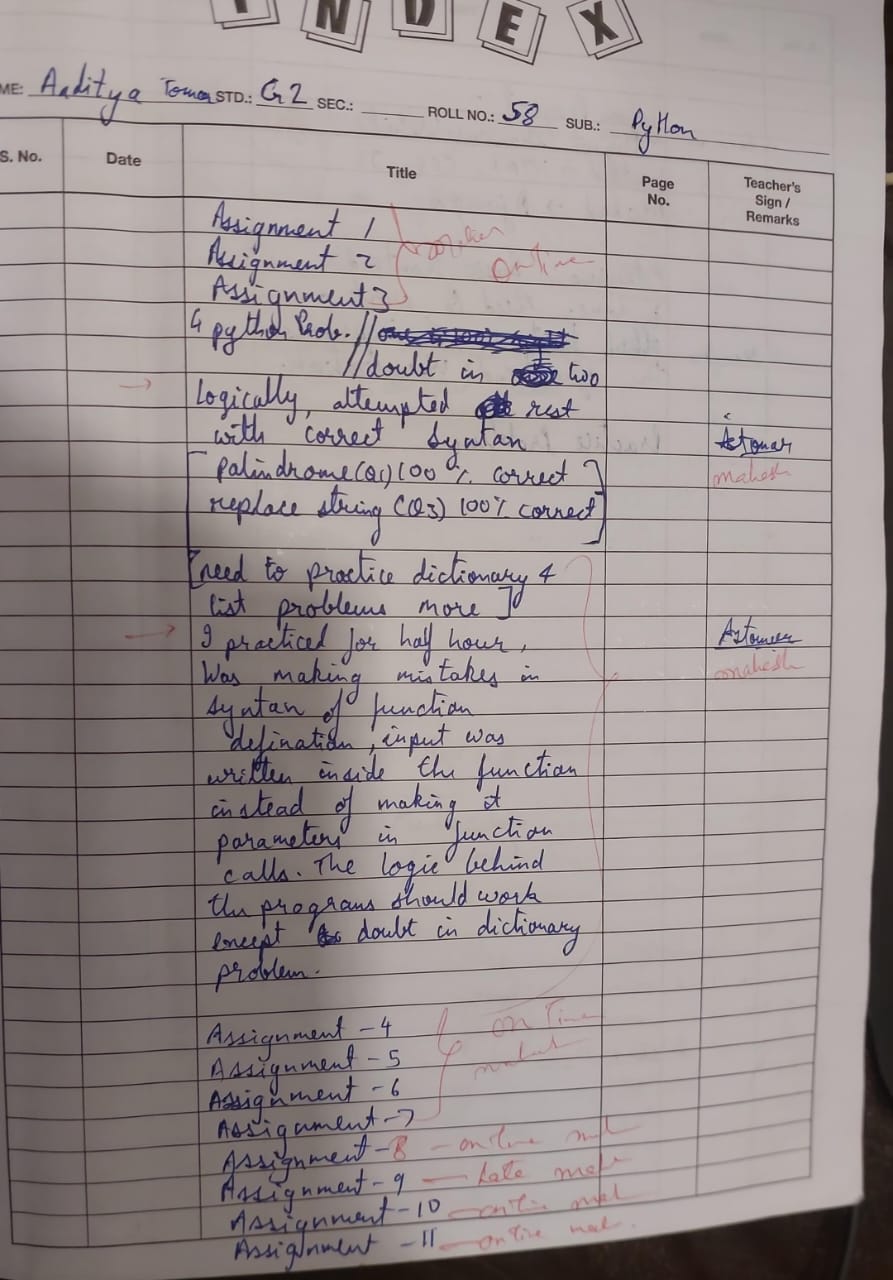 INDEX
ME: Aaditya Tomar STD.: G2 SEC.: ROLL NO.: 58 SUB.: Python
S. No. Date Title Page No. Teacher's Sign / Remarks
Assignment 1
Assignment 2 on time
Assignment 3
4 python Prob. //
//doubt in two
Logically, attempted rest
with correct syntax Astomar
[palindrome (Q1) 100 % correct] mahesh
replace string (Q3) 100% correct]
[need to practice dictionary &
list problems more]
I practiced for half hour, Astomar
Was making mistakes in mahesh
syntax of function
defination, input was
written inside the function
instead of making it
parameters in function
calls. The logic behind
the programs should work
except doubt in dictionary
problem.
Assignment - 4 on time
Assignment - 5
Assignment - 6
Assignment - 7
Assignment - 8 - on time
Assignment - 9 - Late
Assignment - 10 - on time
Assignment - 11 - on time